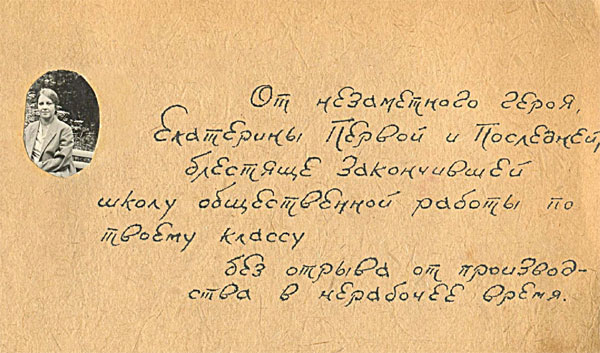 От незаметного героя,
Екатерины Первой и Последней,
блестяще закончившей
школу общественной работы по
твоему классу
без отрыва от производ-
ства в нерабочее время.